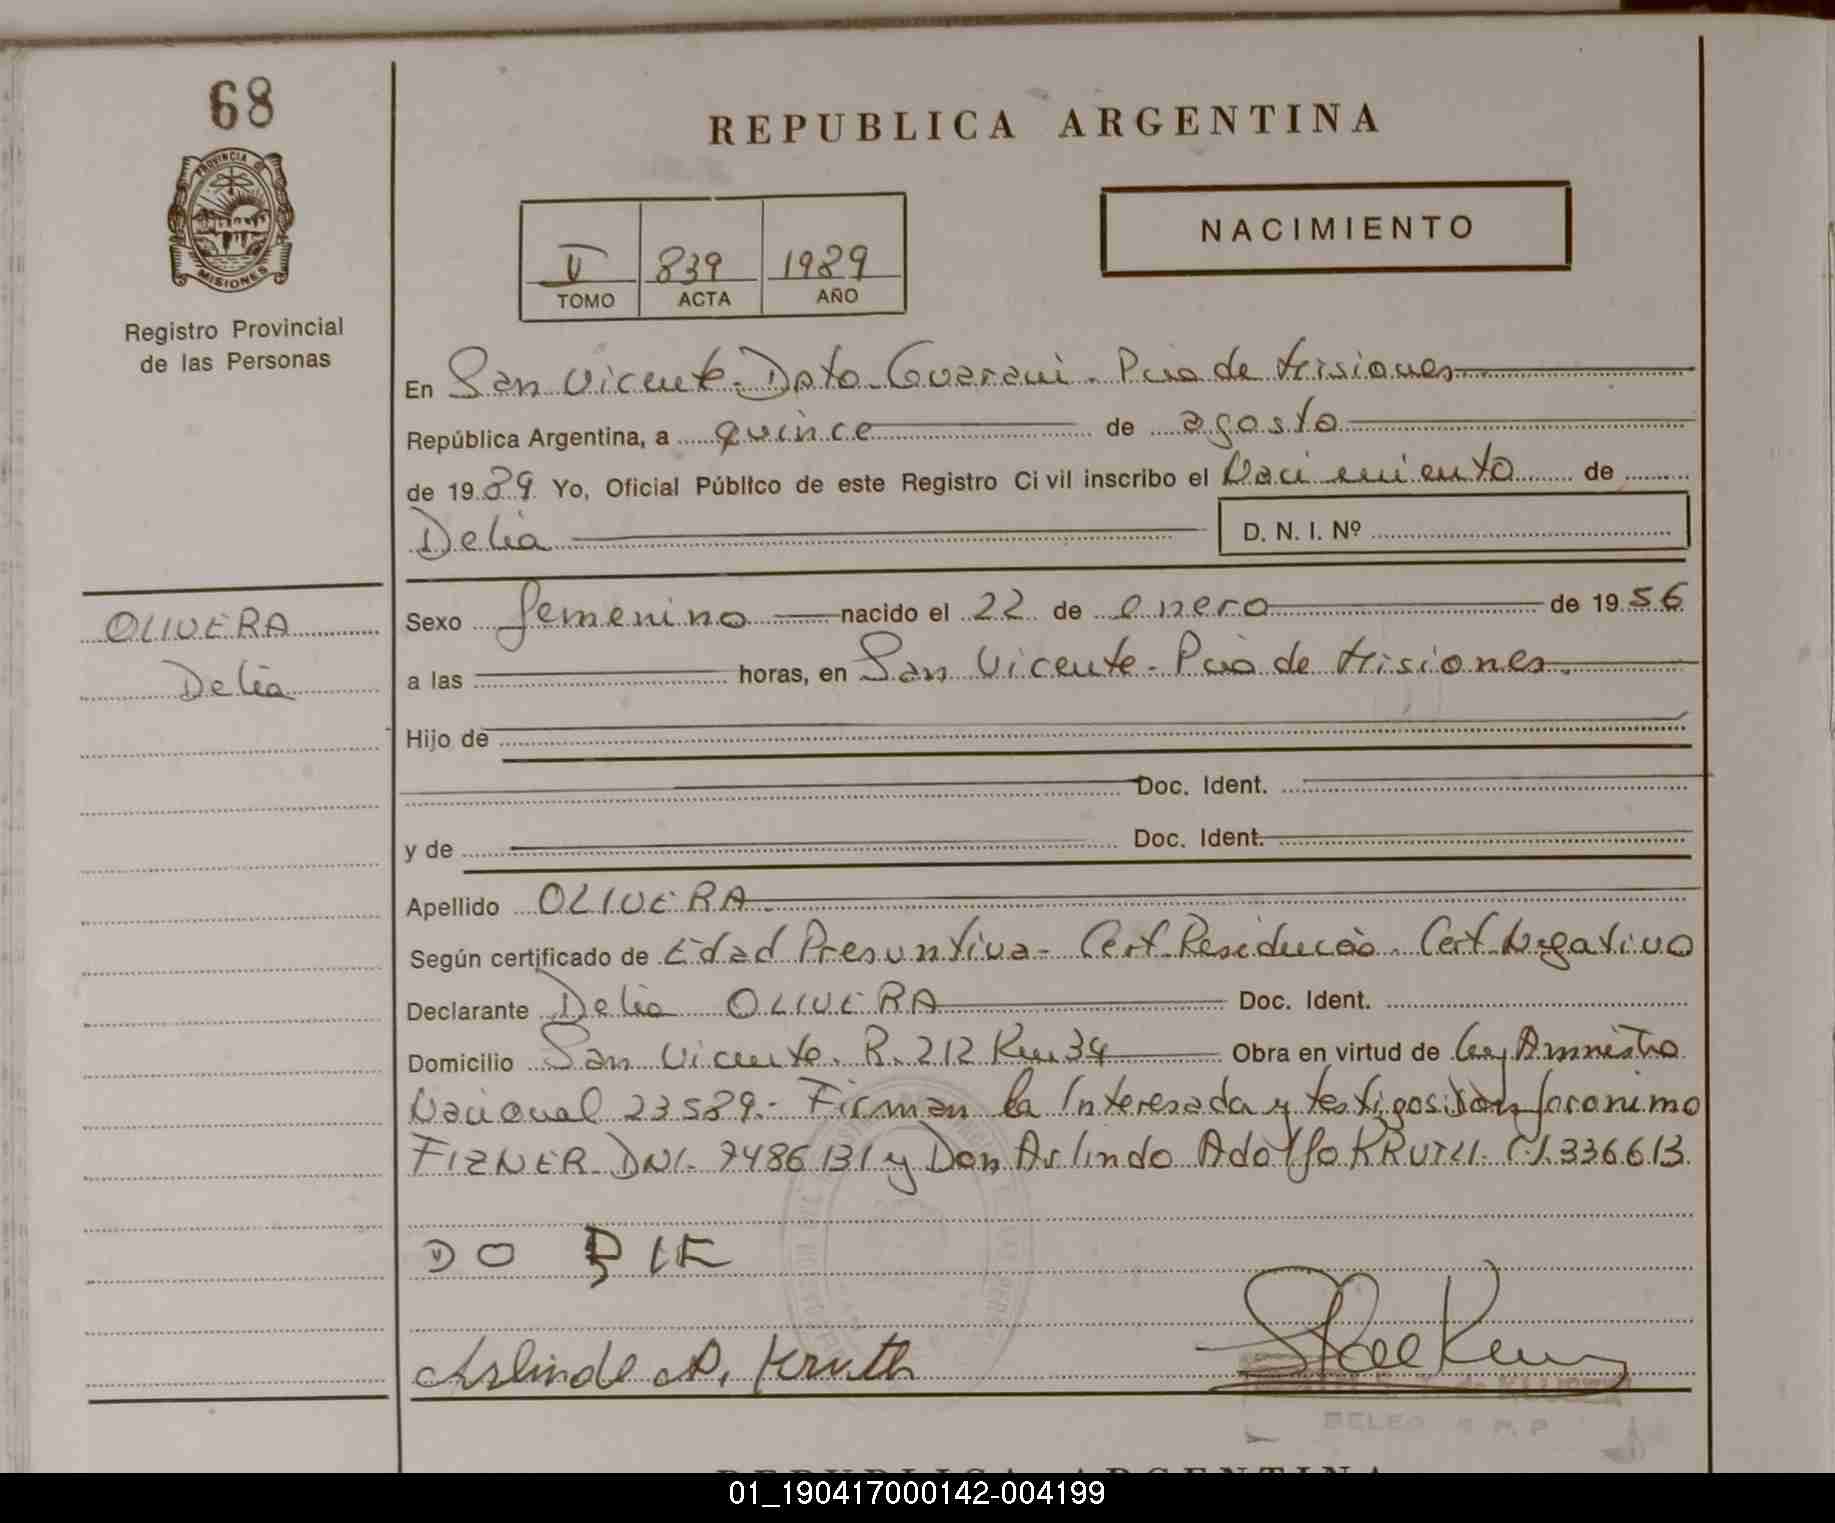 68
REPUBLICA ARGENTINA
PROVINCIA D
MISIONES
Registro Provincial
de las Personas
V 839 1989
TOMO ACTA AÑO
NACIMIENTO
En San Vicente - Dpto. Guarani - Pcia de Misiones
República Argentina, a quince de agosto
de 1989 Yo, Oficial Público de este Registro Civil inscribo el Nacimiento de
Delia D. N. I. Nº
OLIVERA
Delia
Sexo femenino nacido el 22 de enero de 1956
a las horas, en San Vicente - Pcia de Misiones.
Hijo de
Doc. Ident.
y de Doc. Ident.
Apellido OLIVERA
Según certificado de Edad Presuntiva - Cert. Residencia. Cert. Negativo
Declarante Delia OLIVERA Doc. Ident.
Domicilio San Vicente. R. 212 Km 34 Obra en virtud de Ley Amnistia
Nacional 23589.- Firman la Interesada y testigos: Don Joronimo
FIZNER DNI. 7486131 y Don Arlindo Adolfo KRUTH. C.I. 336613.
Arlindo A. Kruth
01_190417000142-004199